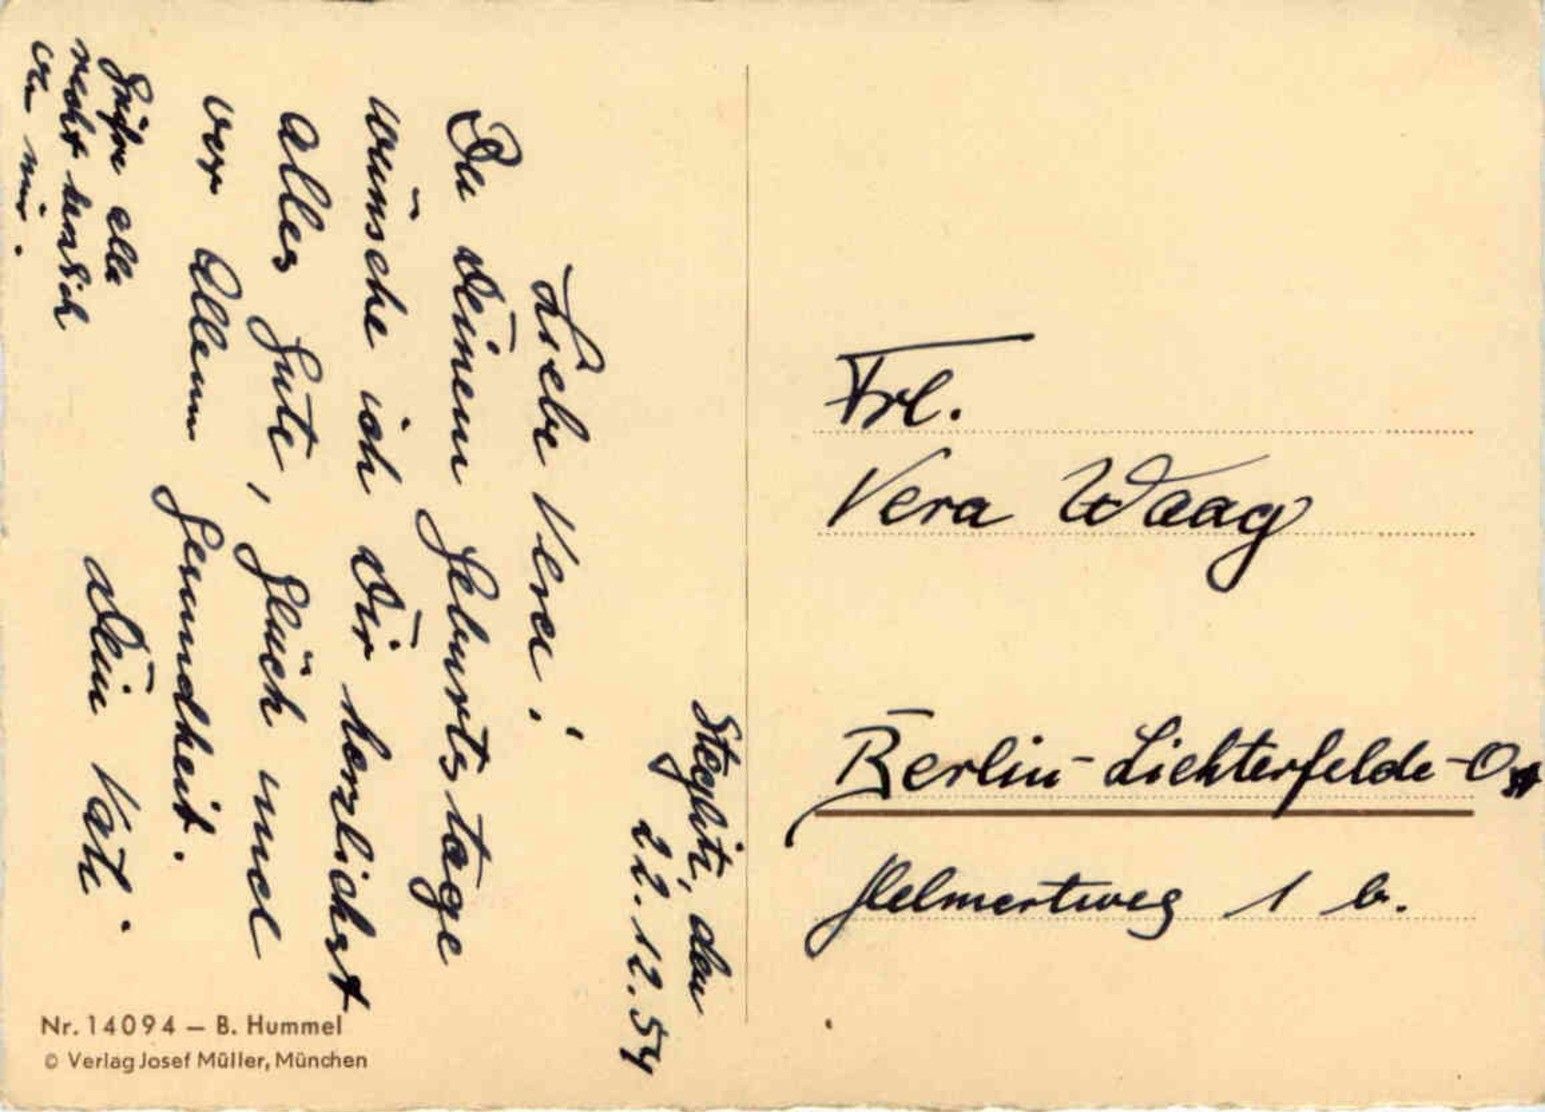 Steglitz, den
22.12.54
Liebe Vera!
Zu Deinem Geburtstage
wünsche ich Dir herzlichst
alles Gute, Glück und
vor Allem Gesundheit.
Dein
Grüße alle
recht herzlich
von mir.
Frl.
Vera Waag
Berlin-Lichterfelde-Ost
Helmertweg 1 b.
Nr. 14094 – B. Hummel
© Verlag Josef Müller, München